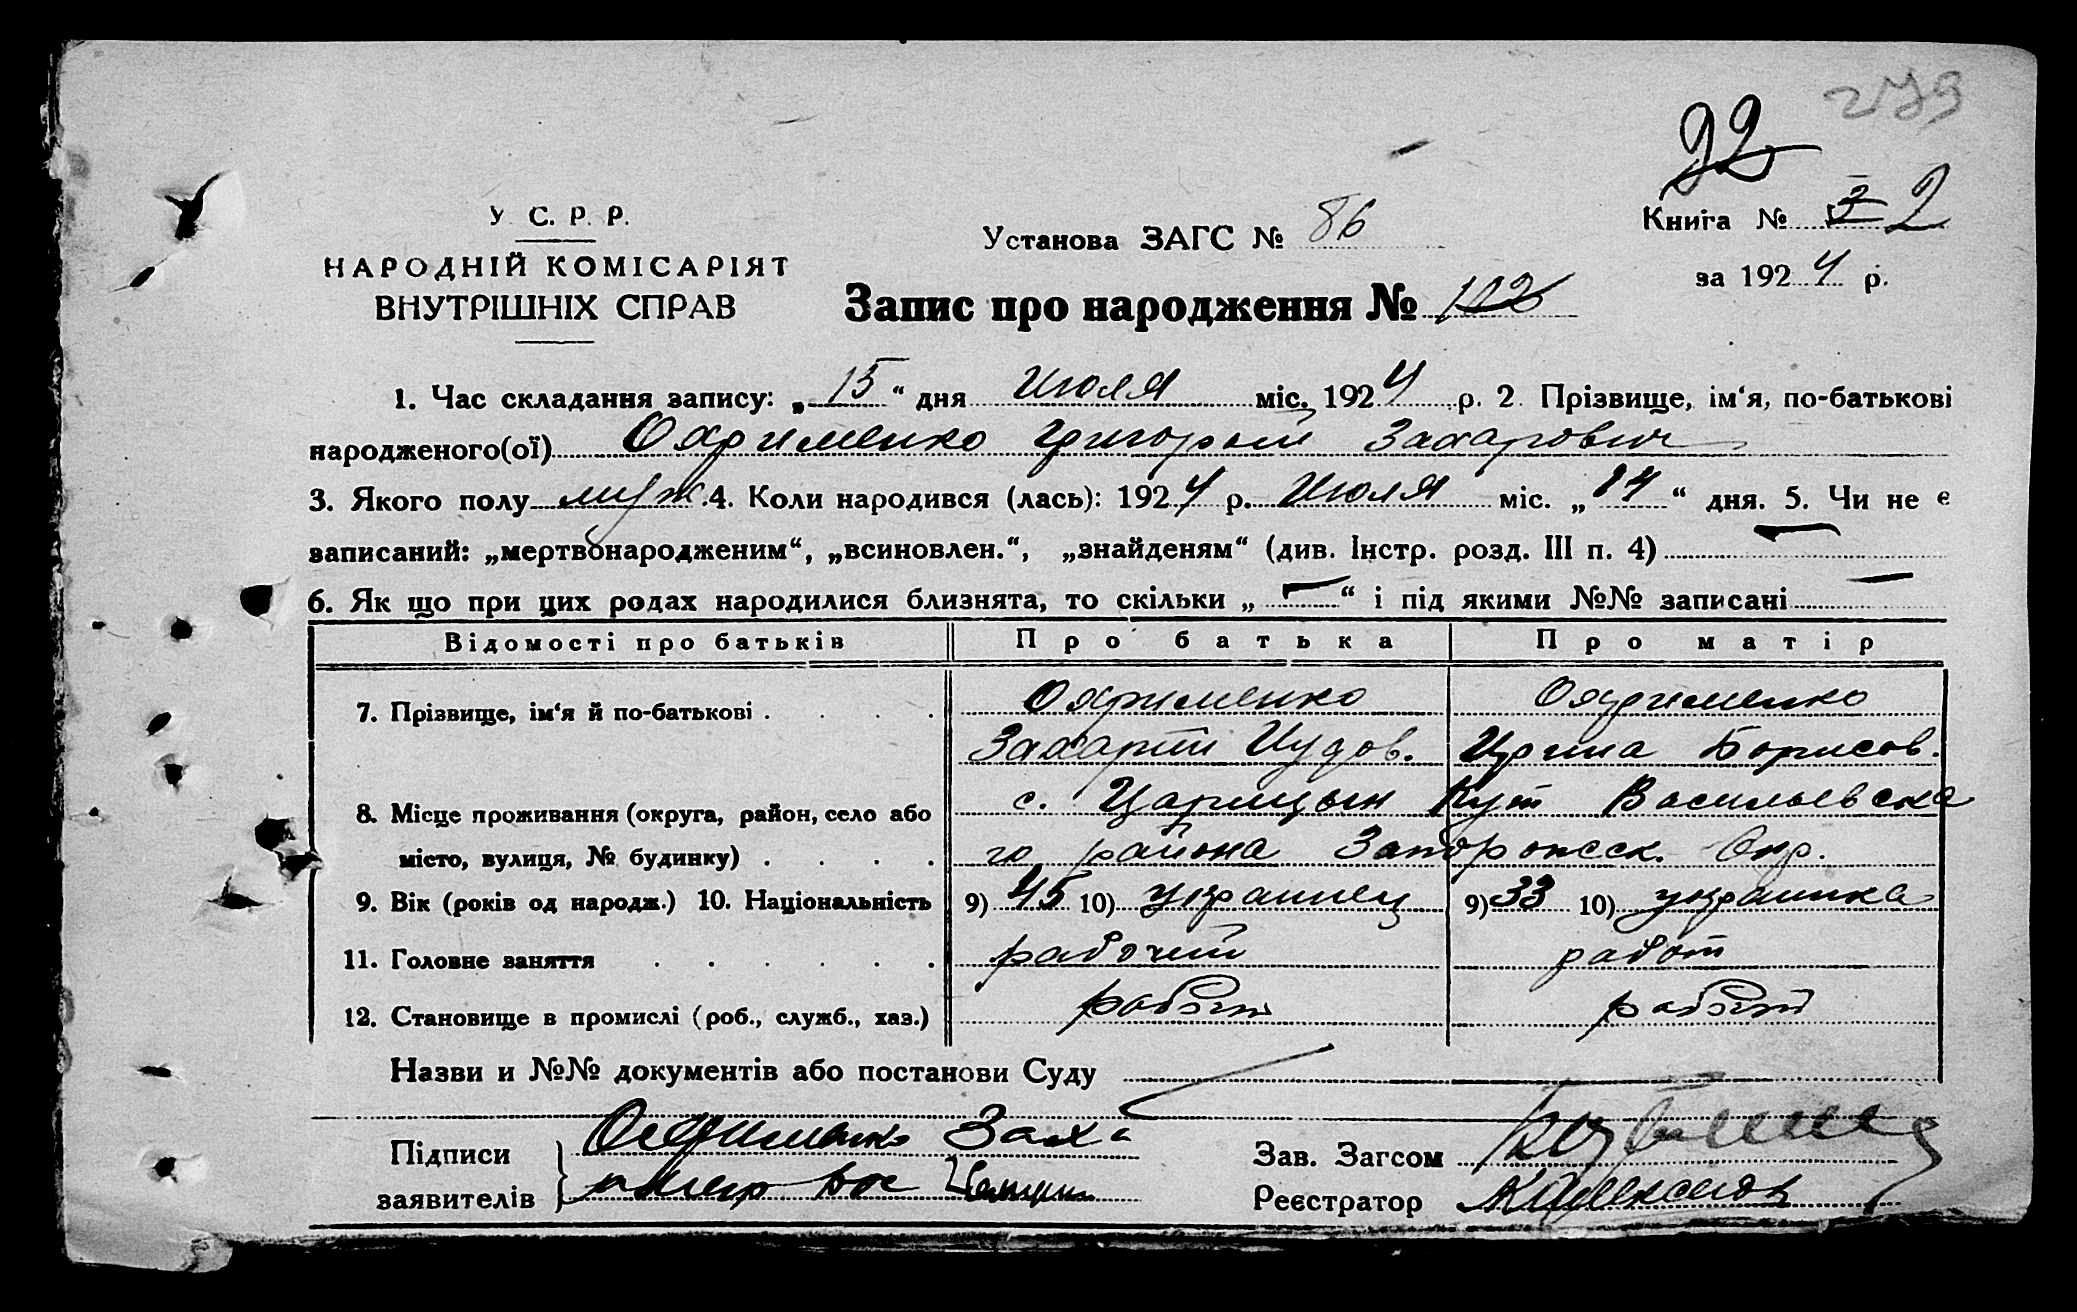 279
22
У. С. Р. Р.
НАРОДНІЙ КОМІСАРІЯТ
ВНУТРІШНІХ СПРАВ
Установа ЗАГС № 86
Книга № 3 2
за 1924 р.
Запис про народження № 102
1. Час складання запису: „15“ дня Июля міс. 1924 р. 2. Прізвище, ім‘я, по-батькові
народженого(ої) Охрименко Григорий Захарович
3. Якого полу муж. 4. Коли народився (лась): 1924 р. Июля міс. „14“ дня. 5. Чи не є
записаний: „мертвонародженим“, „всиновлен.“, „знайденям“ (див. Інстр. розд. III п. 4) —
6. Як що при цих родах народилися близнята, то скільки „—“ і під якими №№ записані —
Відомості про батьків Про батька Про матір
7. Прізвище, ім‘я й по-батькові . . . . Охрименко Охрименко
Захарий Иудов. Ирина Борисов.
8. Місце проживання (округа, район, село або с. Царицын Кут Васильевска
місто, вулиця, № будинку) . . . . го района Запорожск. Окр.
9. Вік (років од народж.) 10. Національність 9) 45 10) украинец 9) 33 10) украинка
11. Головне заняття . . . . . . рабочий работ
12. Становище в промислі (роб., служб., хаз.) рабоч
Назви и №№ документів або постанови Суду
Підписи Охрименко Заха
заявителів
Зав. Загсом
Реєстратор